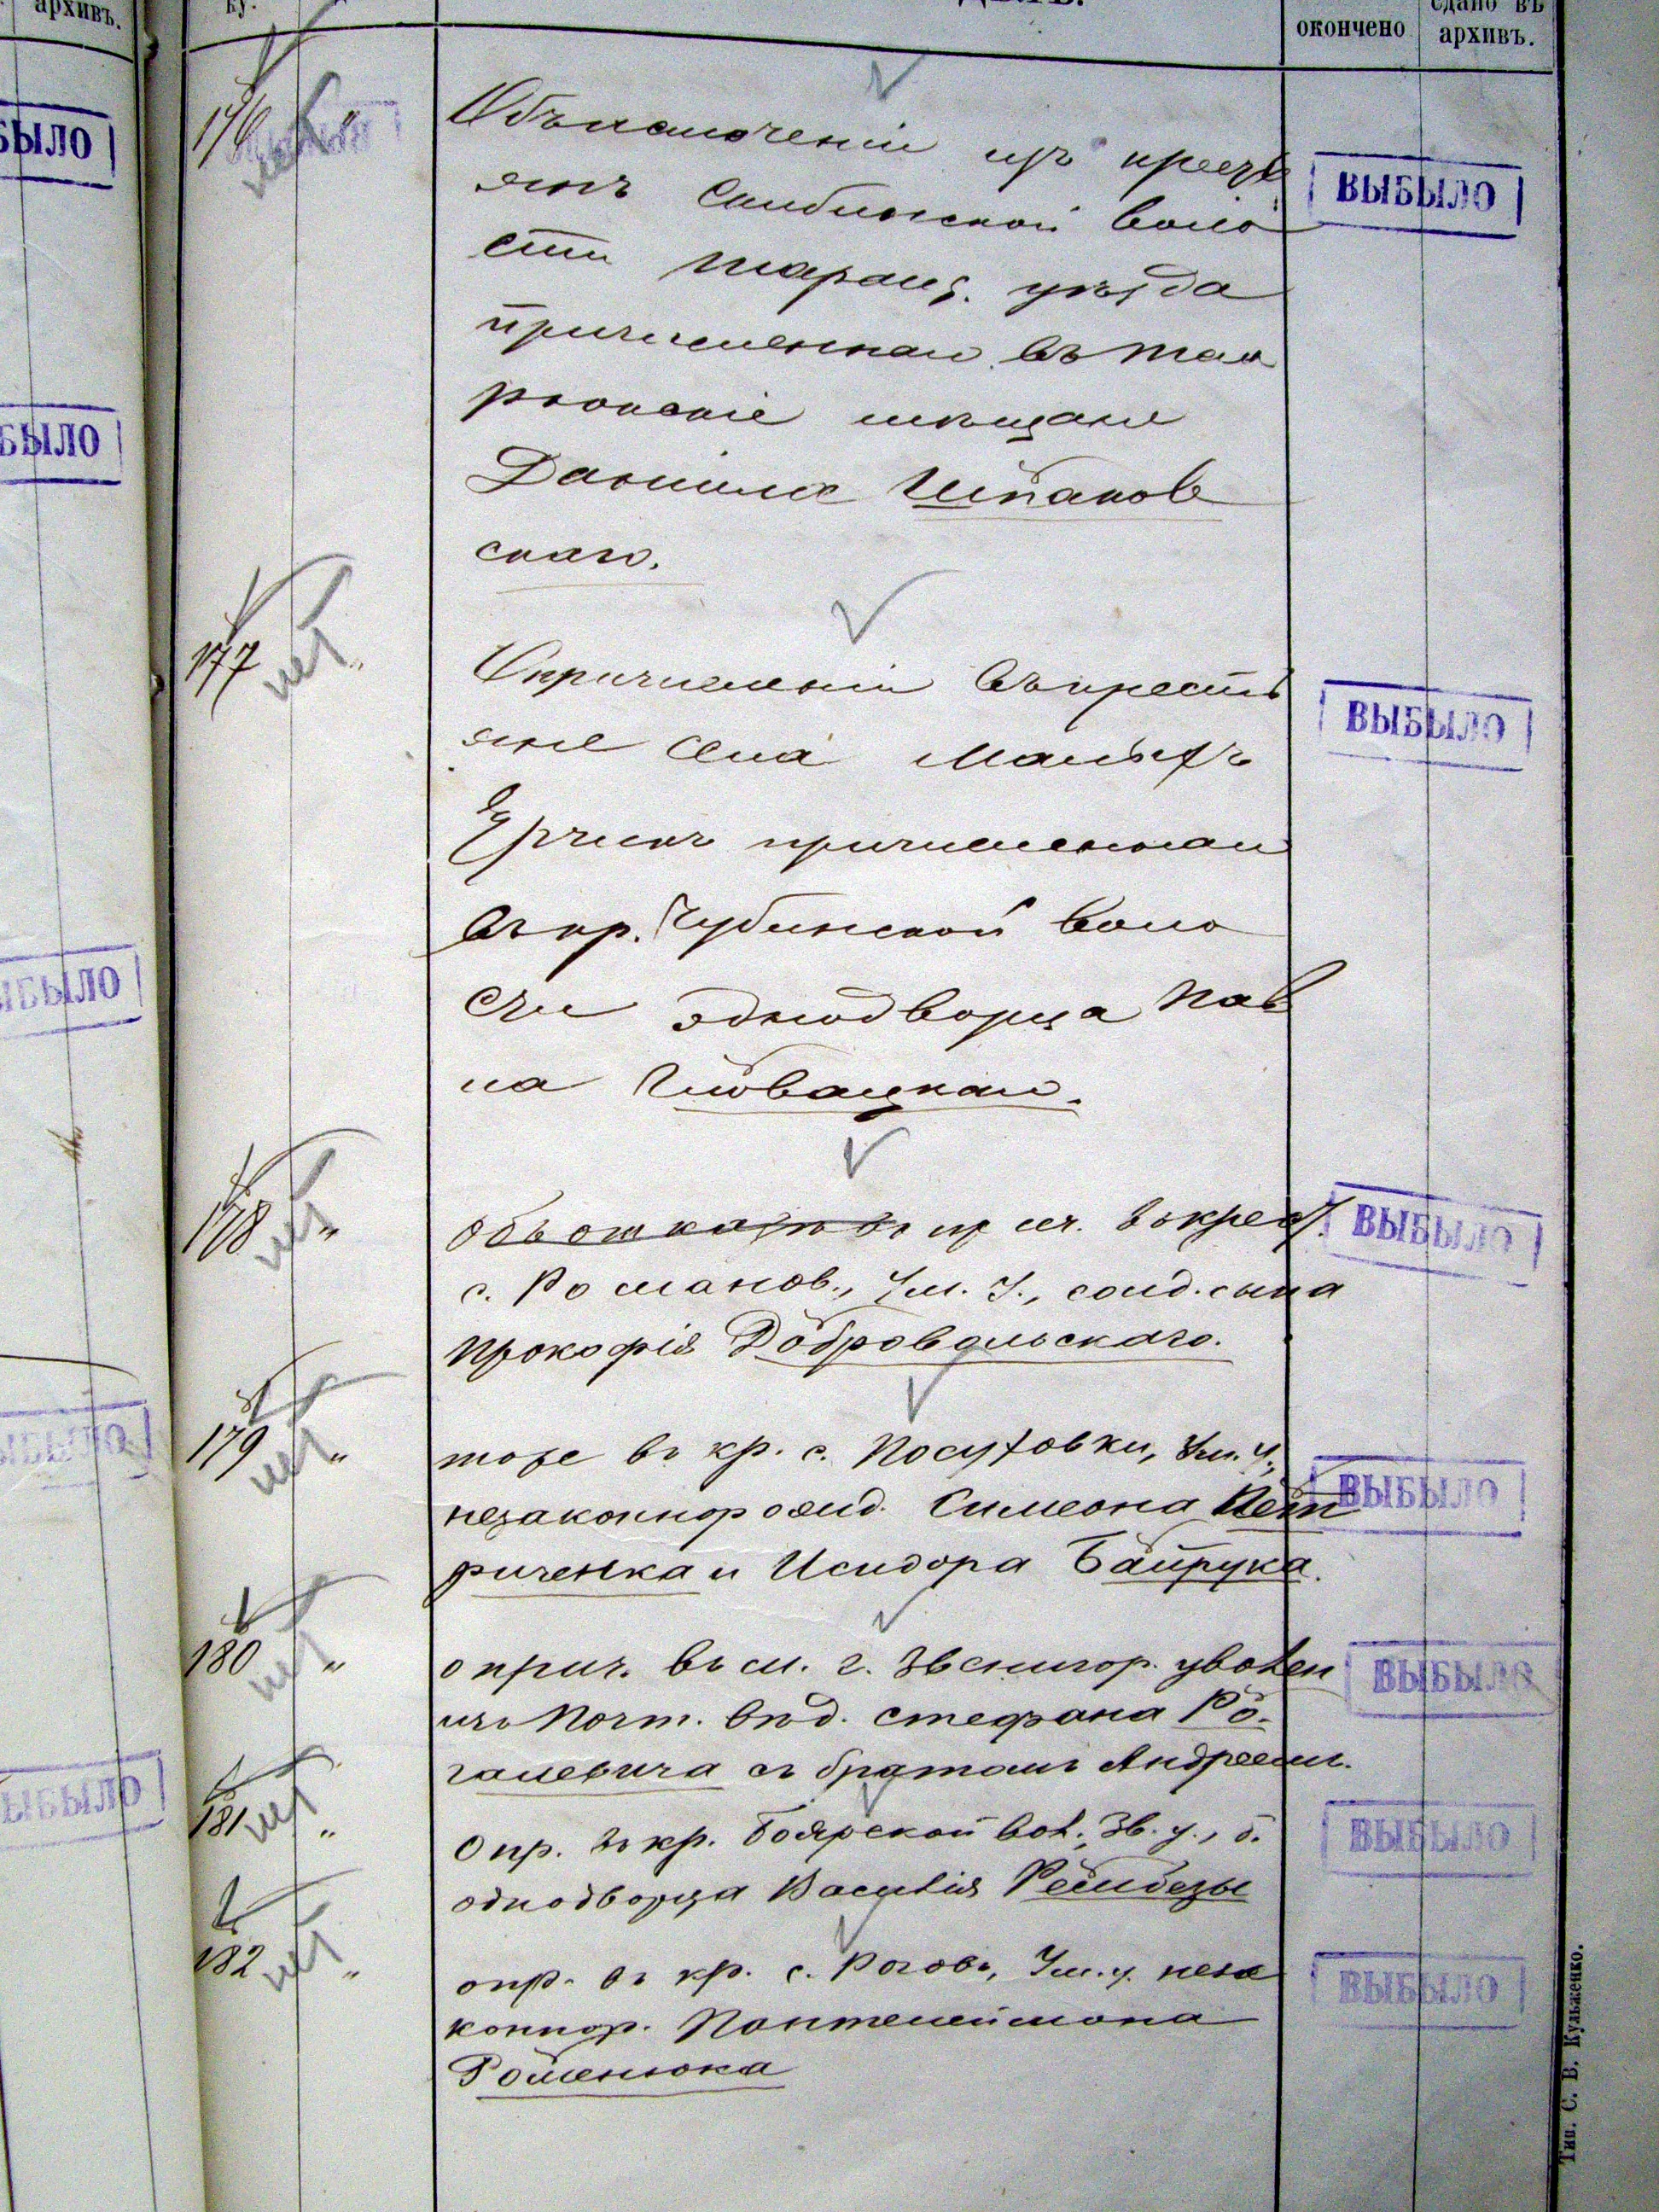 архивъ.
ку.
ДѢЛЪ.
окончено
сдано въ
архивъ.
176 нет "
Объ исключеніи изъ кресть
янъ Скибинской воло
сти Таращ. уѣзда
причисленнаго въ
мѣщане
Даніила Шпаков
скаго.
ВЫБЫЛО
177 нет "
О причисленіи въ кресть
яне села Малыхъ
Ерчикъ причисленнаго
въ кр. Чубинской воло
сти однодворца Пав
ла Гловацкаго.
ВЫБЫЛО
178 нет "
Объ отказѣ въ пр ич. въ крест.
с. Романов., Ум. У., солд. сына
Прокофія Добровольскаго.
ВЫБЫЛО
179 нет "
тоже въ кр. с. Посуховки, Ум. у.,
незаконнорожд. Симеона Пет
риченка и Исидора Байрука.
ВЫБЫЛО
180 нет "
о прич. въ м. г. Звенигор. уволен
изъ Почт. вѣд. Стефана Ро-
галевича съ братомъ Андреемъ.
ВЫБЫЛО
181 нет "
О пр. въ кр. Боярской вол., Зв. у., б.
однодворца Василія Рембезы
ВЫБЫЛО
182 нет "
о пр. въ кр. с. Рогова, Ум. у. неза
коннор. Пантелеймона
Роменюка
ВЫБЫЛО
Тип. С. В. Кульженко.